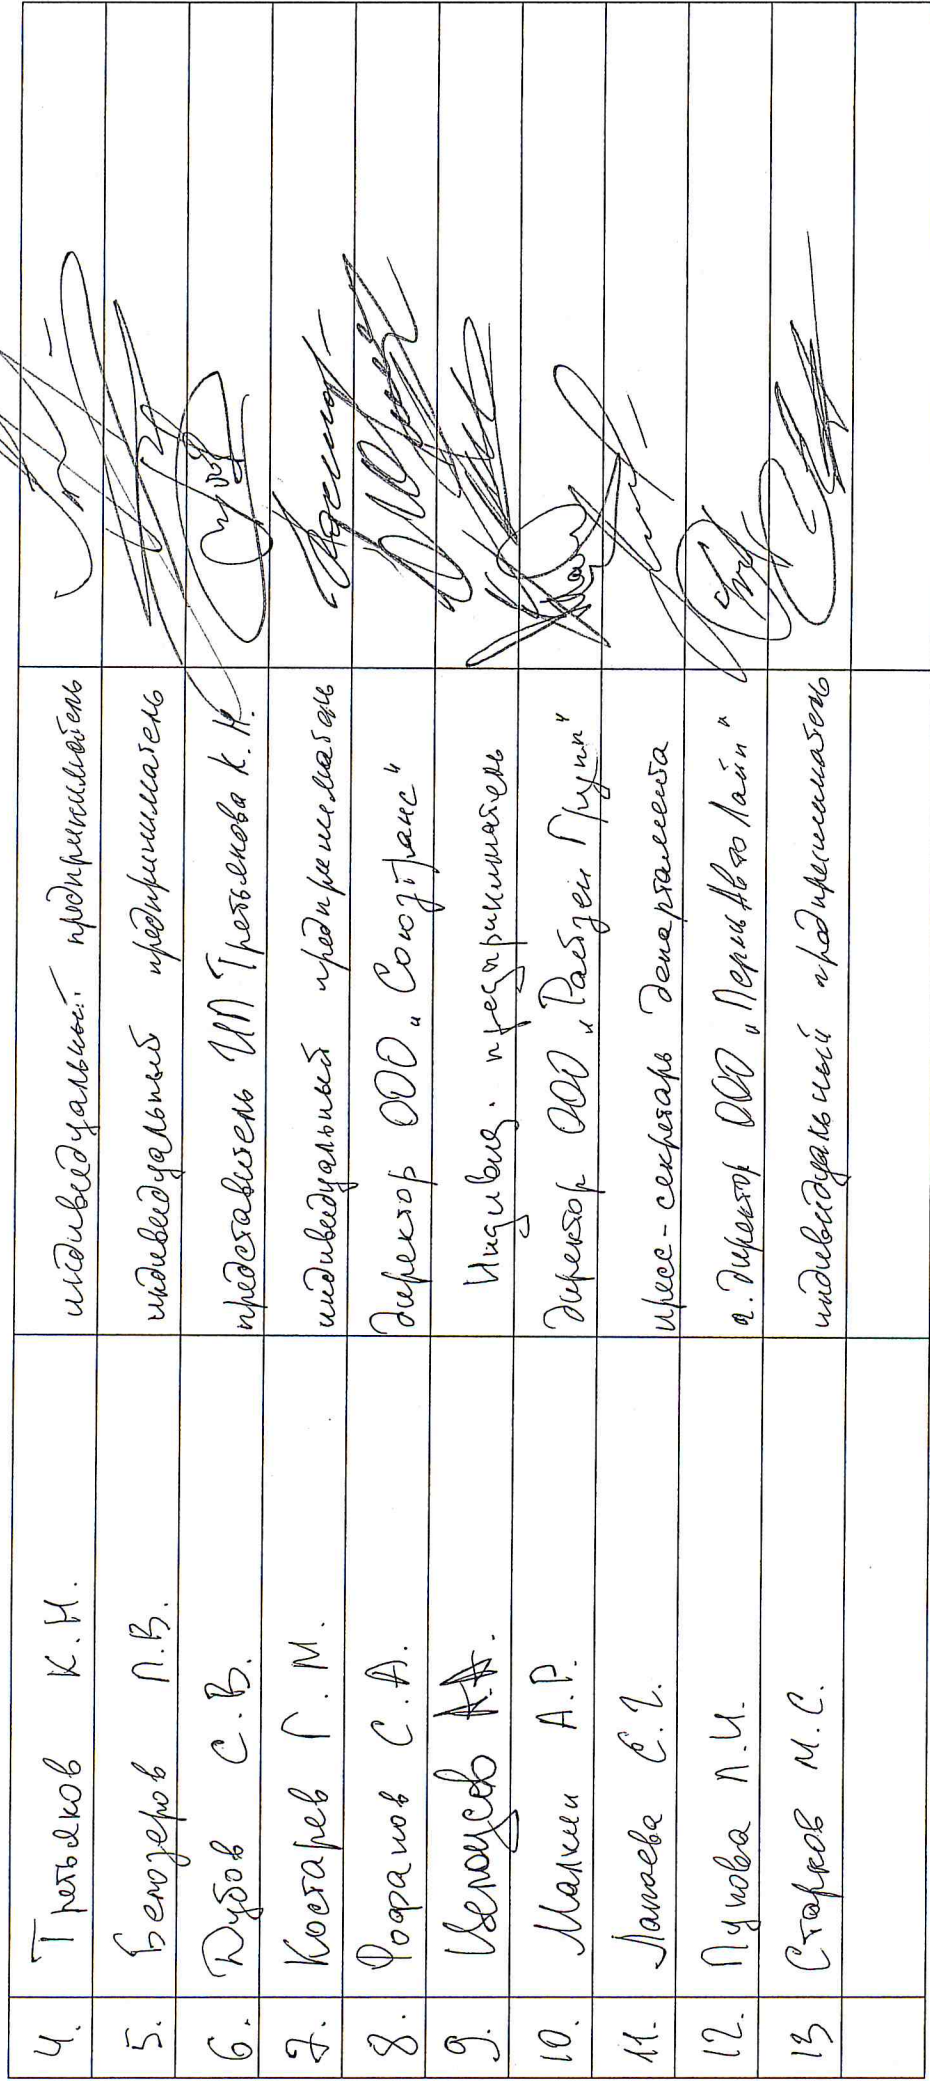 4. Третьяков К.Н. индивидуальный предприниматель
5. Белозеров П.В. индивидуальный предприниматель
6. Дубов С.В. представитель ИП Третьякова К.Н.
7. Костарев Г.М. индивидуальный предприниматель
8. Фофанов С.А. директор ООО „Союзтранс“
9. Индивид. предприниматель
10. Малкин А.Р. директор ООО „Рабзен Групп“
11. Лапаева Е.Г. пресс-секретарь департамента
12. Пункова Л.И. г. директор ООО „ПермьАвтоЛайн“
13 Старков М.С. индивидуальный предприниматель